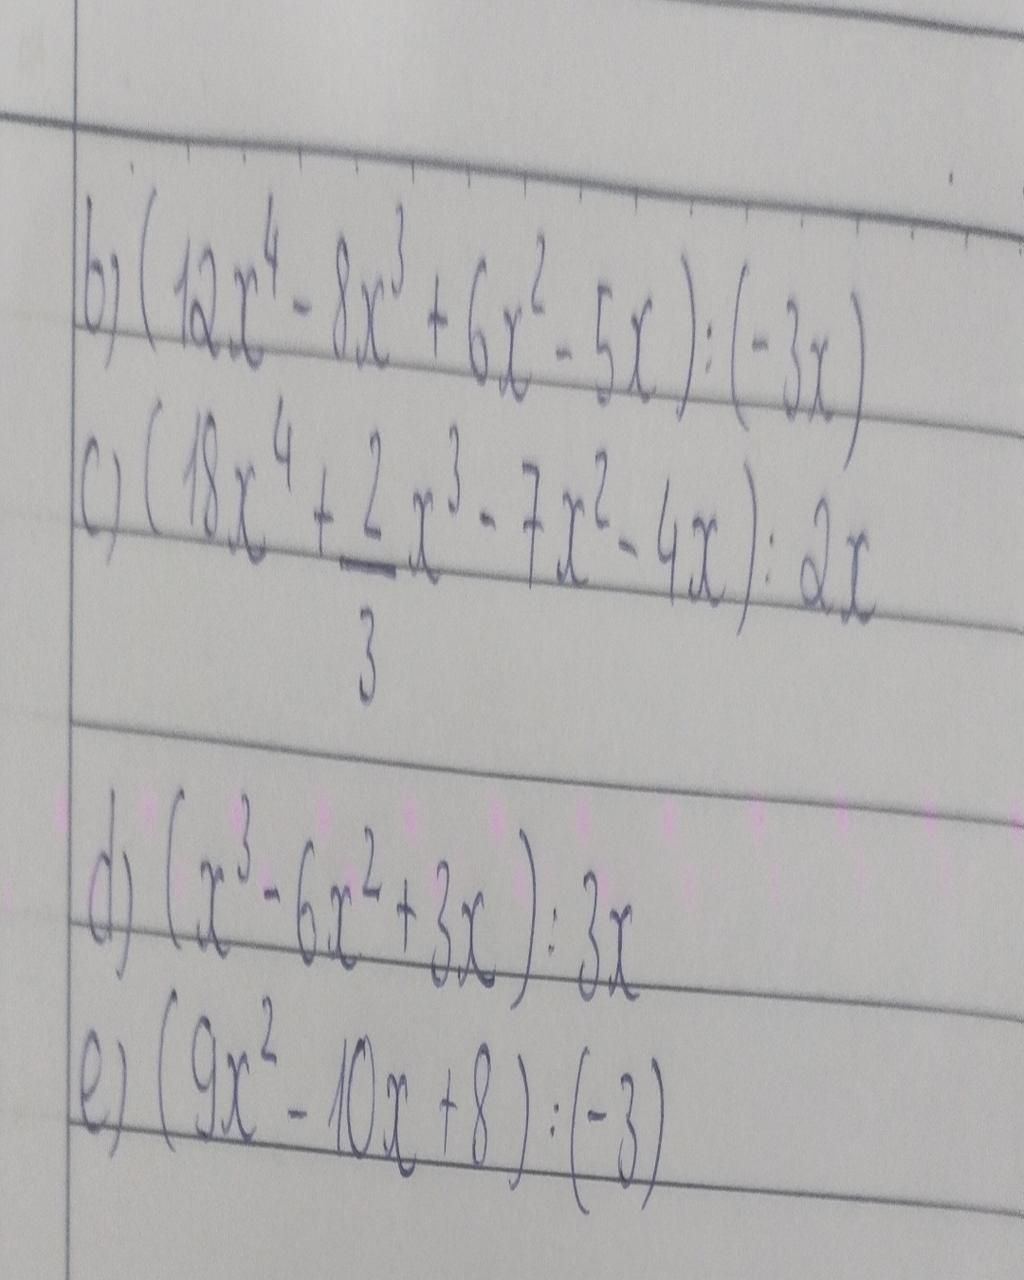 b) (12x⁴ - 8x³ + 6x² - 5x) : (-3x)
c) (18x⁴ + 2/3 x³ - 7x² - 4x) : 2x
d) (x³ - 6x² + 3x) : 3x
e) (9x² - 10x + 8) : (-3)